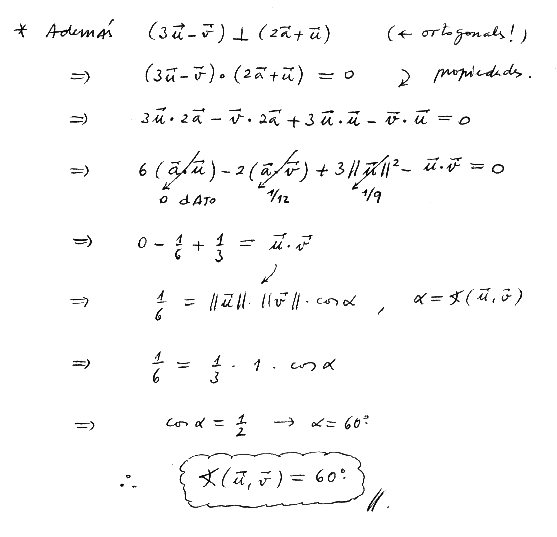 * Además (3u⃗-v⃗) ⊥ (2a⃗+u⃗) (← ortogonals!)
⇒ (3u⃗-v⃗)•(2a⃗+u⃗) = 0 propiedades.
⇒ 3u⃗·2a⃗ - v⃗·2a⃗ + 3u⃗·u⃗ - v⃗·u⃗ = 0
⇒ 6(a⃗·u⃗) - 2(a⃗·v⃗) + 3||u⃗||² - u⃗·v⃗ = 0
0 dATO 1/12 1/9
⇒ 0 - 1/6 + 1/3 = u⃗·v⃗
⇒ 1/6 = ||u⃗||·||v⃗||·cosα , α = ∢(u⃗,v⃗)
⇒ 1/6 = 1/3 · 1 · cosα
⇒ cosα = 1/2 → α = 60°
∴ ∢(u⃗,v⃗) = 60° //.